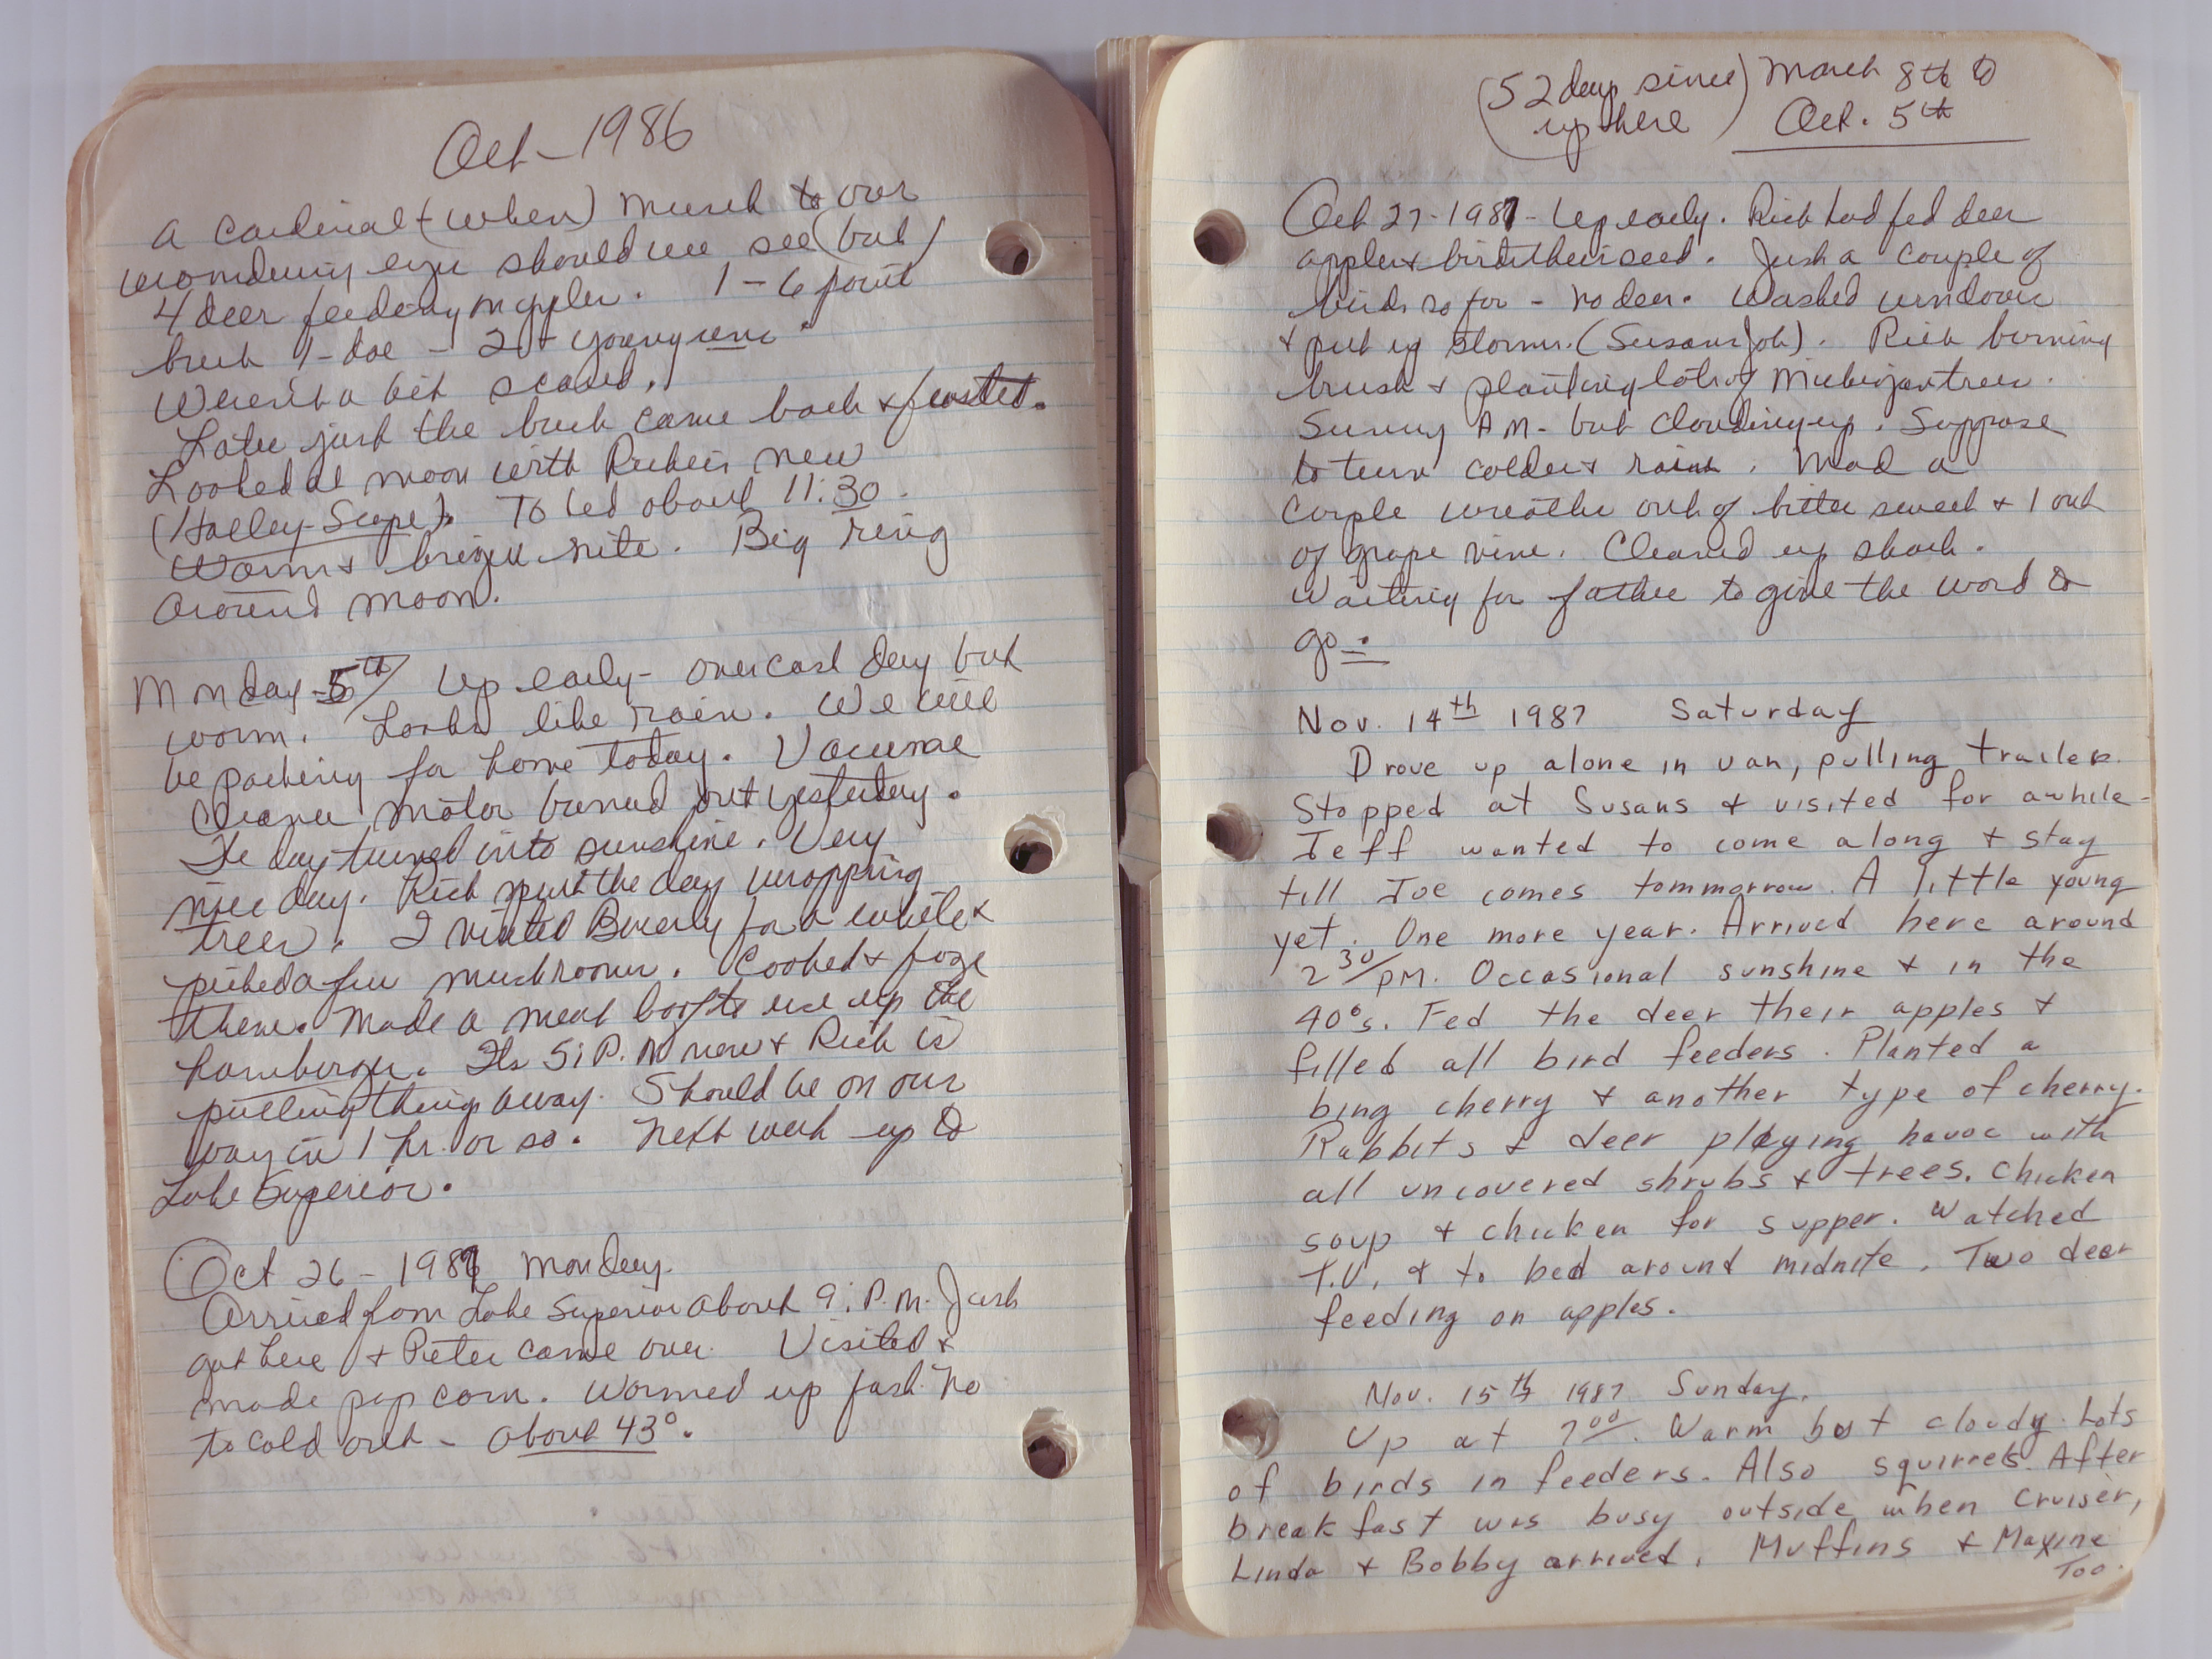 Oct - 1986
a cardinal + (when) much to our
wondering eyes should we see (but)
4 deer feeding on apples. 1 - 6 point
buck 1 - doe - 2 + youngsens
Weren't a bit scared.
Later just the buck came back & feasted.
Looked at moon with Richies new
(Halley-Scope). To bed about 11:30.
Warm & bright nite. Big ring
around moon.
Monday - 5th / Up early - overcast day but
warm. Looks like rain. We will
be packing for home today. Vacume
Cleaner motor burned out yesterday.
The day turned into sunshine. Very
nice day. Rich spent the day wrapping
trees. I visited Beverly for a while &
picked a few mushrooms. Cooked & froze
them. Made a meat loaf to use up the
hamburger. Its 5: P.M now & Rich is
putting things away. Should be on our
way in 1 hr. or so. Next week up to
Lake Superior.
Oct 26 - 1987 Monday.
Arrived from Lake Superior about 9: P.M. Just
got here & Pieter came over. Visited &
made pop corn. Warmed up fast. No
to cold out - about 43°.
(52 days since) March 8th to
up here Oct. 5th
Oct 27 - 1987 - Up early. Rich had fed deer
apples & birds their seed. Just a couple of
birds so far - no deer. Washed windows
& put up storms. (Susans Job). Rich burning
brush & planting lots of Michigan trees.
Sunny A M - but clouding up. Suppose
to turn colder & rain. Mad a
couple wreaths out of bitter sweet & 1 out
of grape vine. Cleaned up shack.
Waiting for father to give the word to
go.
Nov. 14th 1987 Saturday
Drove up alone in van, pulling trailer.
Stopped at Susans & visited for awhile -
Jeff wanted to come along & stay
till Joe comes tommorrow. A little young
yet. One more year. Arrived here around
2 30/PM. Occasional sunshine & in the
40°s. Fed the deer their apples &
filled all bird feeders. Planted a
bing cherry & another type of cherry.
Rabbits & deer playing havoc with
all uncovered shrubs & trees. Chicken
soup & chicken for supper. Watched
T.V. & to bed around midnite. Two deer
feeding on apples.
Nov. 15th 1987 Sunday.
Up at 7 00. Warm but cloudy. Lots
of birds in feeders. Also squirrels. After
breakfast was busy outside when Cruiser,
Linda & Bobby arrived. Muffins & Maxine
Too.